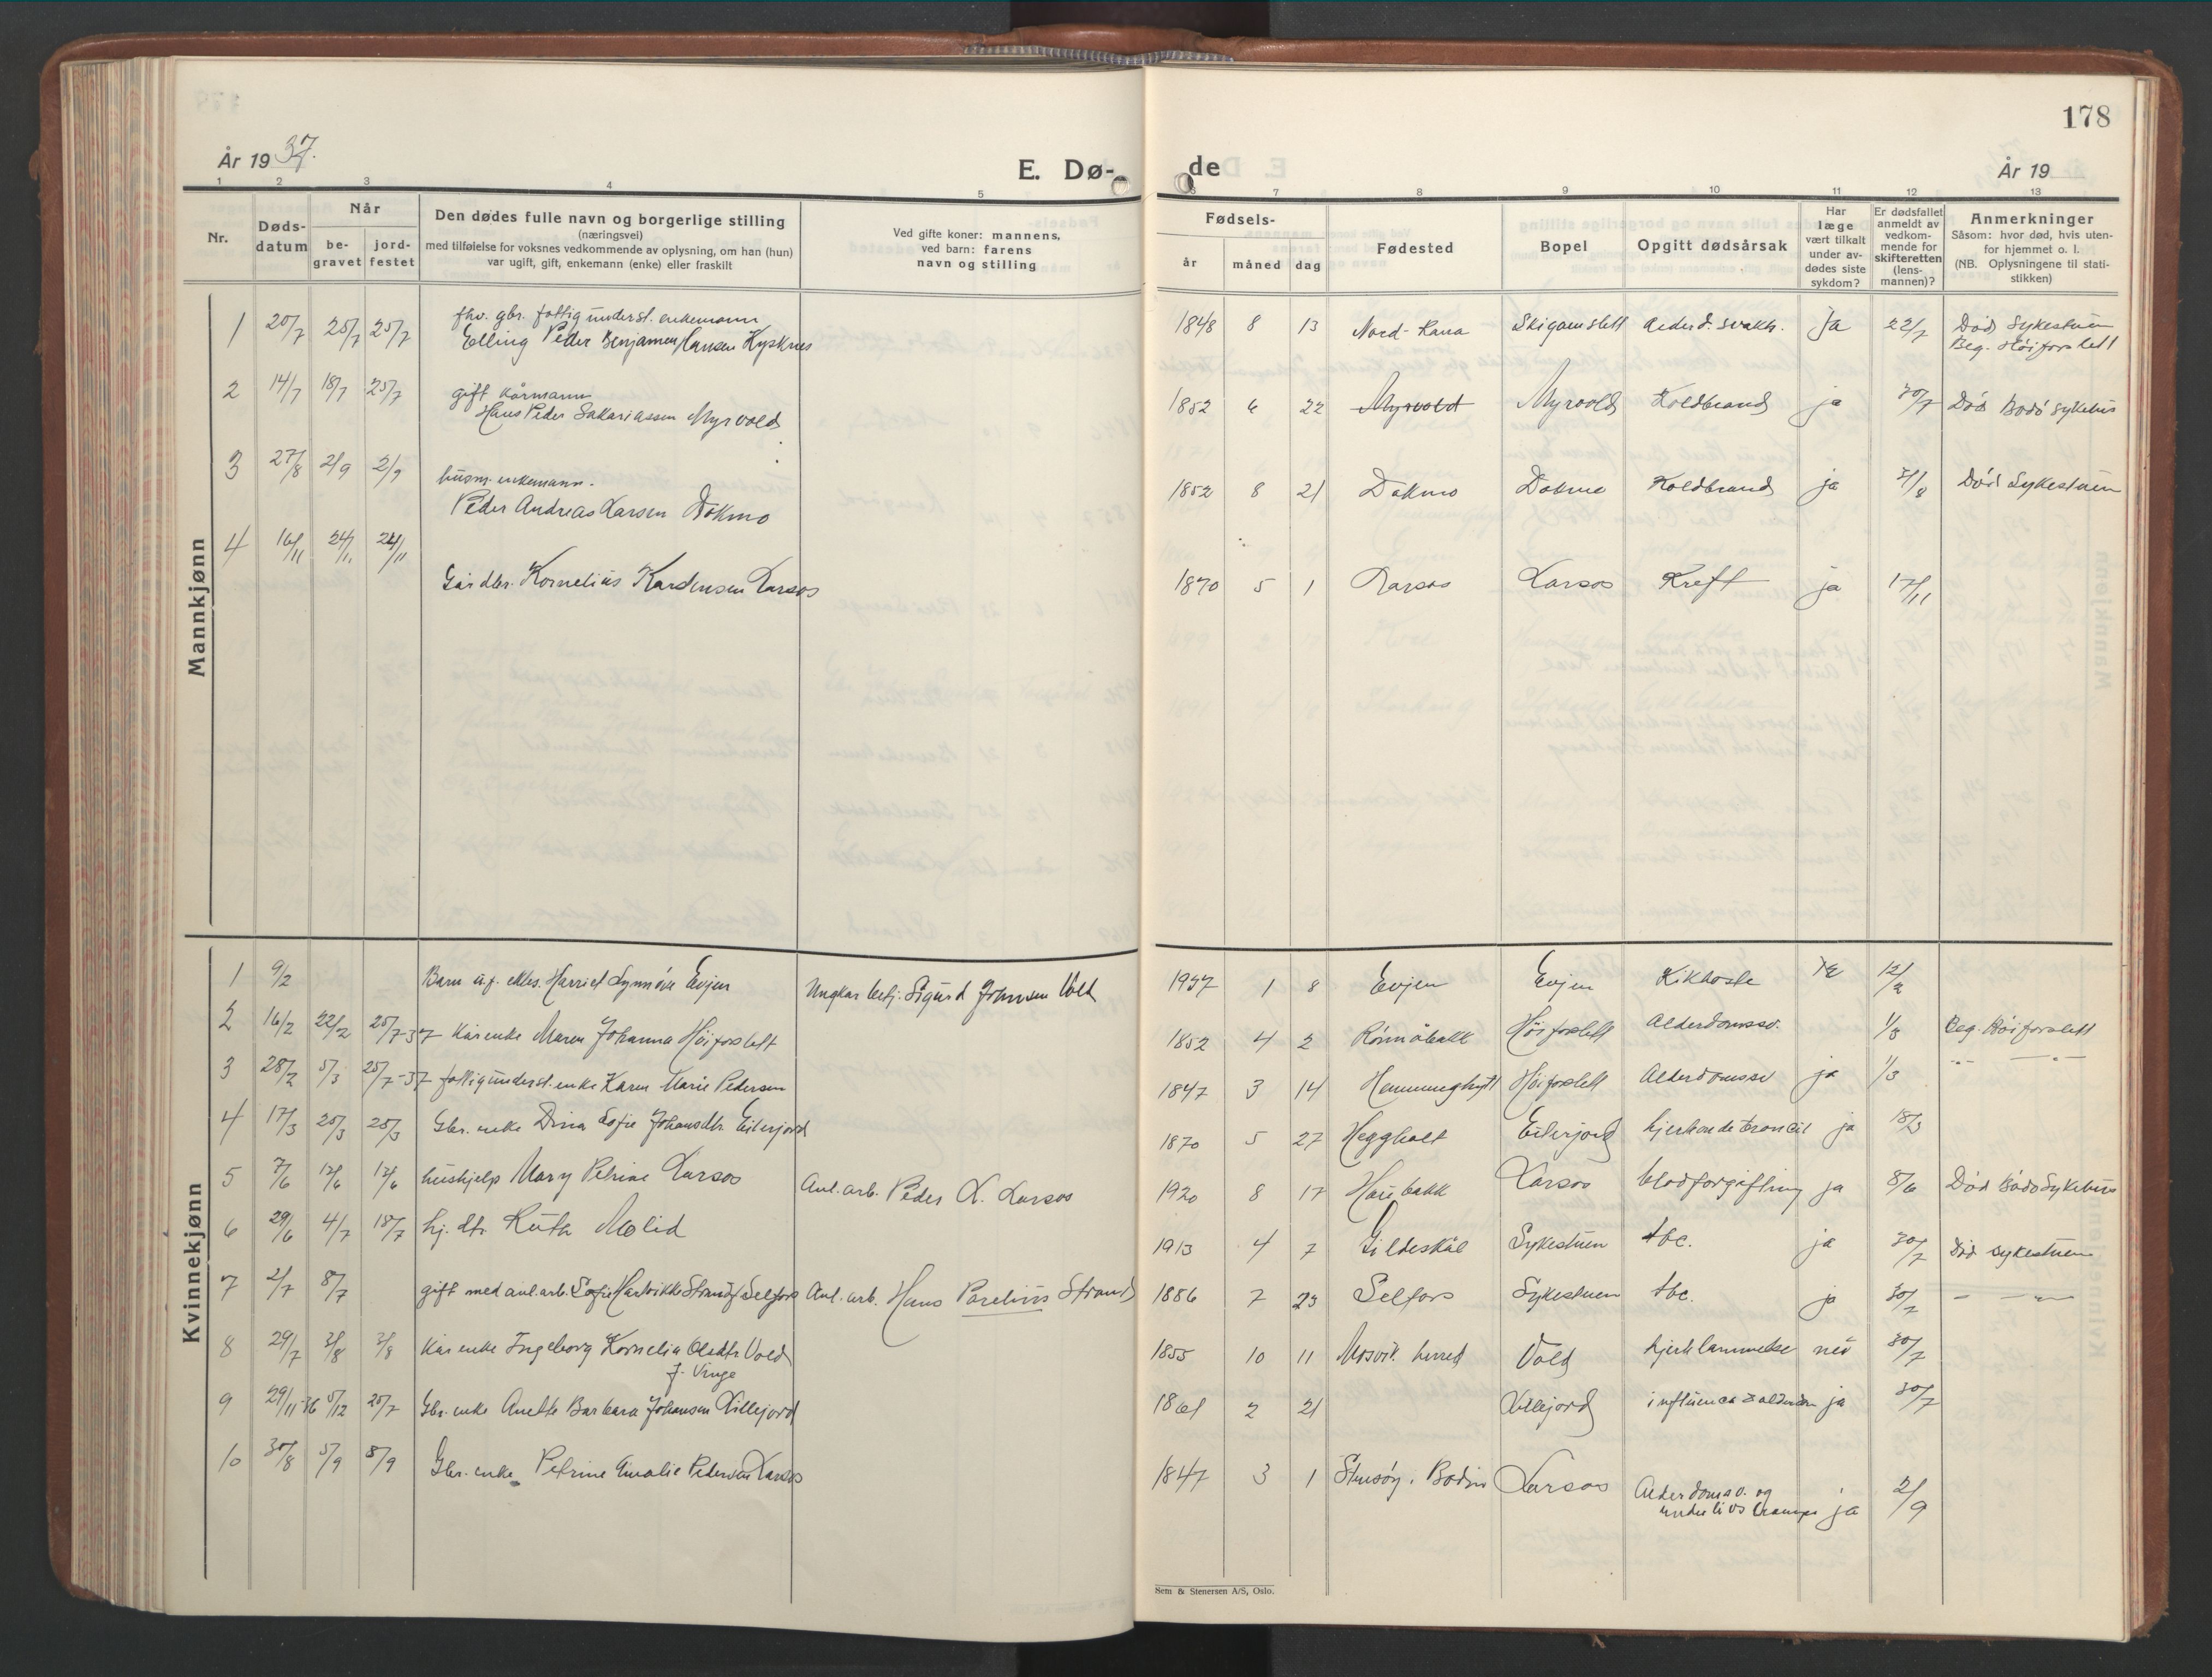 178
År 1937.
E. Dø-
de
År 19
1 2 3 4 5 6 7 8 9 10 11 12 13
Nr.
Døds-
datum
Når
be-
gravet
jord-
festet
Den dødes fulle navn og borgerlige stilling
(næringsvei)
med tilføielse for voksnes vedkommende av oplysning, om han (hun)
var ugift, gift, enkemann (enke) eller fraskilt
Ved gifte koner: mannens,
ved barn: farens
navn og stilling
Fødsels-
år måned dag
Fødested
Bopel
Opgitt dødsårsak
Har
læge
vært tilkalt
under av-
dødes siste
sykdom?
Er dødsfallet
anmeldt av
vedkom-
mende for
skifteretten
(lens-
mannen)?
Anmerkninger
Såsom: hvor død, hvis uten-
for hjemmet o. l.
(NB. Oplysningene til stati-
stikken)
Mannkjønn
fhv. gbr. fattigunderst. enkemann
1 20/7 25/7 25/7 Elling Peder Benjamin Hansen Kysknes 1848 8 13 Nord-Rana Skigamslett Alderd. svakh. ja 22/7 Død Sykestuen
Beg. Høiforslett
2 14/7 18/7 25/7 gift kårmann
Hans Peder Sakariassen Myrvold 1852 6 22 Myrvold Myrvold Koldbrand ja 20/7 Død Bodø sykehus
3 27/8 2/9 2/9 husm. enkemann.
Peder Andreas Larsen Dokmo 1852 8 21 Dokmo Dokmo Koldbrand ja 31/8 Død Sykestuen
4 16/11 24/11 24/11
Gårdbr. Kornelius Kardensen Larsos 1870 5 1 Larsos Larsos Kreft ja 17/11
Kvinnekjønn
1 9/2 Barn u.f. ektes. Harriet Synnøve Evjen Ungkar Sigurd Johnsen Vold 1937 1 8 Evjen Evjen Kikhoste 12/2
2 16/2 22/2 25/7-37 Kårenke Maren Johanna Høiforslett 1852 4 2 Høiforslett Alderdomssv. 1/3 Beg. Høiforslett
3 28/2 5/3 25/7-37 fattigunderst. enke Karen Marie Pedersen 1847 3 14 Høiforslett Alderdomssv ja 1/3 -"- -"-
4 17/3 25/3 25/3 Gbr. enke Dina Sofie Johansdtr. Eiterjord 1870 5 27 Heggholt Eiterjord ja 18/3
5 7/6 12/6 12/6 hushjelp Mary Petrine Larsos Anl. arb. Peder L. Larsos 1920 8 17 Larsos blodforgiftning ja 8/6 Død Bodø Sykehus
6 29/6 4/7 18/7 hj. dtr. Ruth Molid 1913 4 7 Gildeskål Sykestuen tbc. ja 30/7 Død sykestuen
7 2/7 8/7 gift med anl. arb. Sofie Hartvikke Strand f. Selfors Anl. arb. Hans Parelius Strand 1886 7 23 Selfors Sykestuen tbc. ja 30/7 - -"-
8 29/7 3/8 3/8 Kårenke Ingeborg Kornelia Olsdtr Vold
f. Vinge 1855 10 11 Mosvik herred Vold hjertelammelse nei 30/7
9 29/11-36 5/12 25/7 Gbr. enke Anette Barbara Johansen Lillejord 1861 2 21 Lillejord influensa alderdom ja 30/7
10 30/8 5/9 8/9 Gbr. enke Petrine Amalie Pedersen Larsos 1847 3 1 i Bodin Larsos Alderdomsv. og
underlivs ja 2/9
Sem & Stenersen A/S, Oslo.